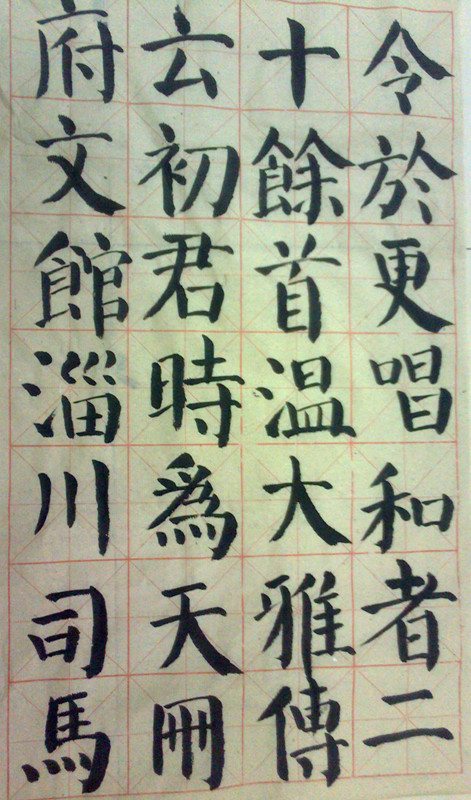 令於更唱和者二
十餘首温大雅傳
云初君時爲天冊
府文館淄川司馬